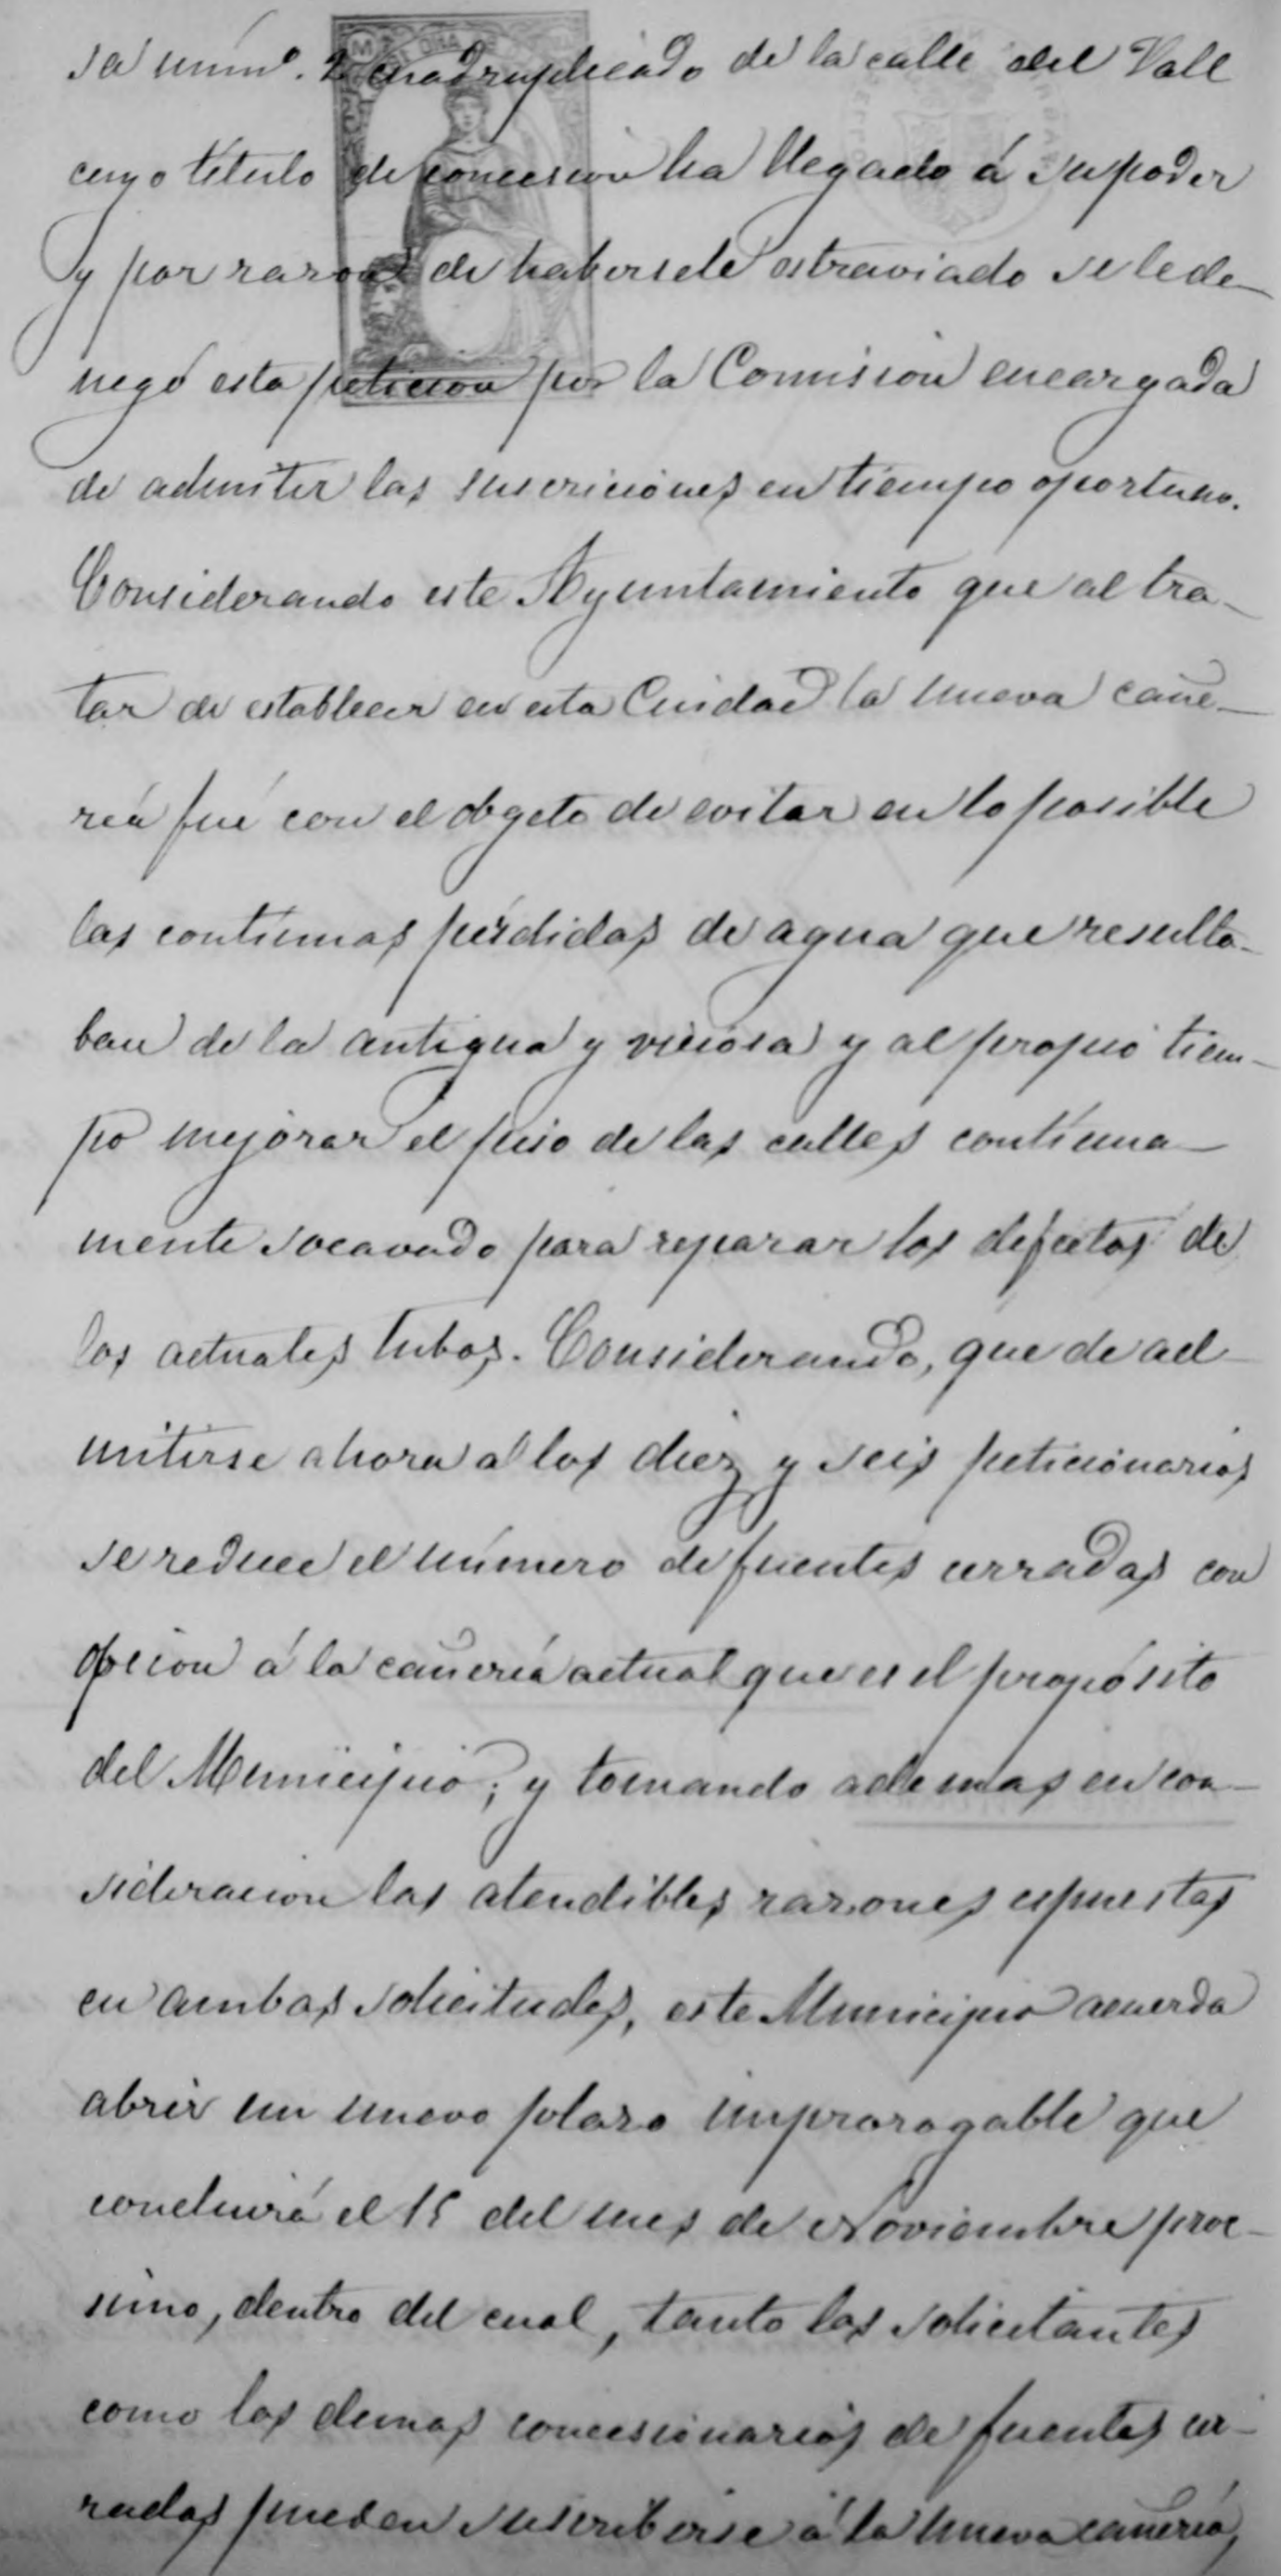 sa núm.º 2 cuadruplicado de la calle del Vall
cuyo título de concesion ha llegado á su poder
y por razon de habersele estraviado se le de-
negó esta peticion por la Comision encargada
de admitir las suscriciones en tiempo oportuno.
Considerando este Ayuntamiento que al tra-
tar de establecer en esta Ciudad la nueva cañe-
ría fué con el obgeto de evitar en lo posible
las contínuas pérdidas de agua que resulta-
ban de la antigua y viciosa y al propio tiem-
po mejorar el piso de las calles contínua-
mente socavado para reparar los defectos de
los actuales tubos. Considerando, que de ad-
mitirse ahora á los diez y seis peticionarios
se reduce el número de fuentes cerradas con
opcion á la cañería actual que es el propósito
del Municipio; y tomando ademas en con-
sideracion las atendibles razones espuestas
en ambas solicitudes, este Municipio acuerda
abrir un nuevo plazo improrogable que
concluirá el 15 del mes de Noviembre proc-
simo, dentro del cual, tanto los solicitantes
como los demas concesionarios de fuentes cer-
radas pueden suscribirse á la nueva cañería,